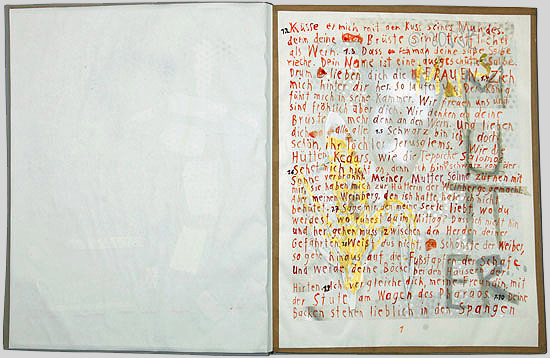 1.2 Küsse er mich mit dem Kuss seines Mundes.
denn deine Brüste sind trefflicher
als Wein. 1.3 Dass man deine süße Salbe
rieche. Dein Name ist eine ausgeschüttete Salbe.
Drum lieben dich die FRAUEN. Zieh
mich hinter dir her. So laufen Der König
führt mich in seine Kammer. Wir freuen uns und
sind fröhlich über dich. Wir denken an deine
Brüste mehr denn an den Wein. Und lieben
dich alle. 1.5 Schwarz bin ich, doch
schön, ihr Töch Jerusalems. Wie die
Hütten Kedars, wie die Teppiche Salomos.
1.6 Seht mich nicht an, denn ich bin schwarz von der
Sonne verbrannt. Meiner Mutter Söhne zürnen mit
mir, sie haben mich zur Hütterin der Weinberge gemacht.
Aber meinen Weinberg, den ich hatte, habe ich nicht
behütet. Sage mir, den meine Seele liebt, wo du
weidest, wo ruhest du im Mittag? Dass ich nicht hin
und her gehen muss zwischen den Herden deiner
Gefährten. Weißt du es nicht, Schönste der Weiber,
so gehe hinaus auf die Fußstapfen der Schafe
und weide deine Böcke bei den Häusern der
Hirten. Ich vergleiche dich, meine Freundin, mit
der Stute am Wagen des Pharaos. 1.10 Deine
Backen stehen lieblich in den Spangen
1